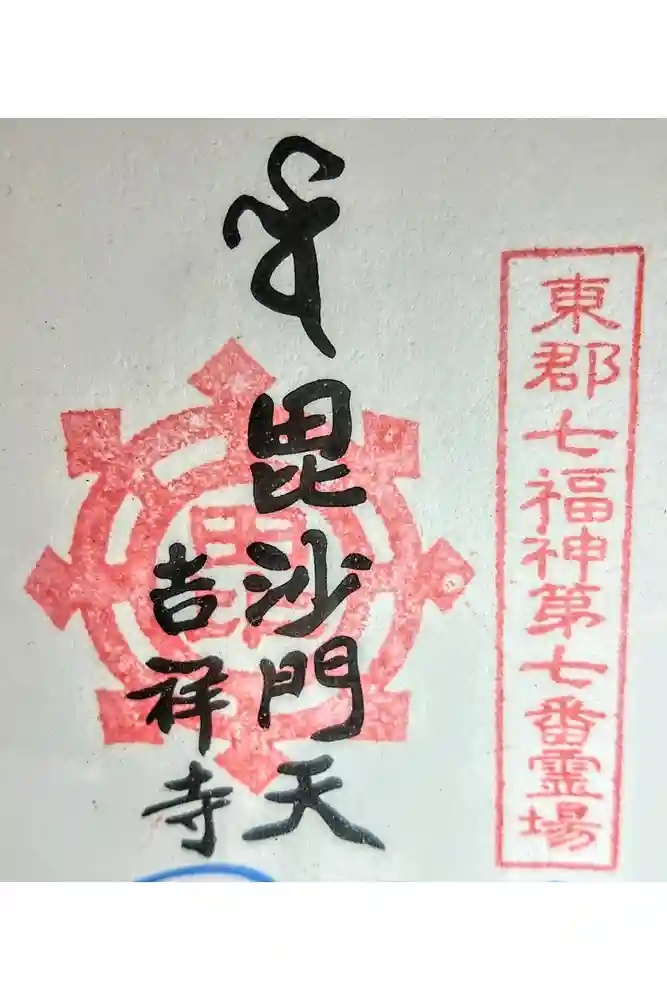 東郡七福神第七番霊場
毘沙門天
吉祥寺